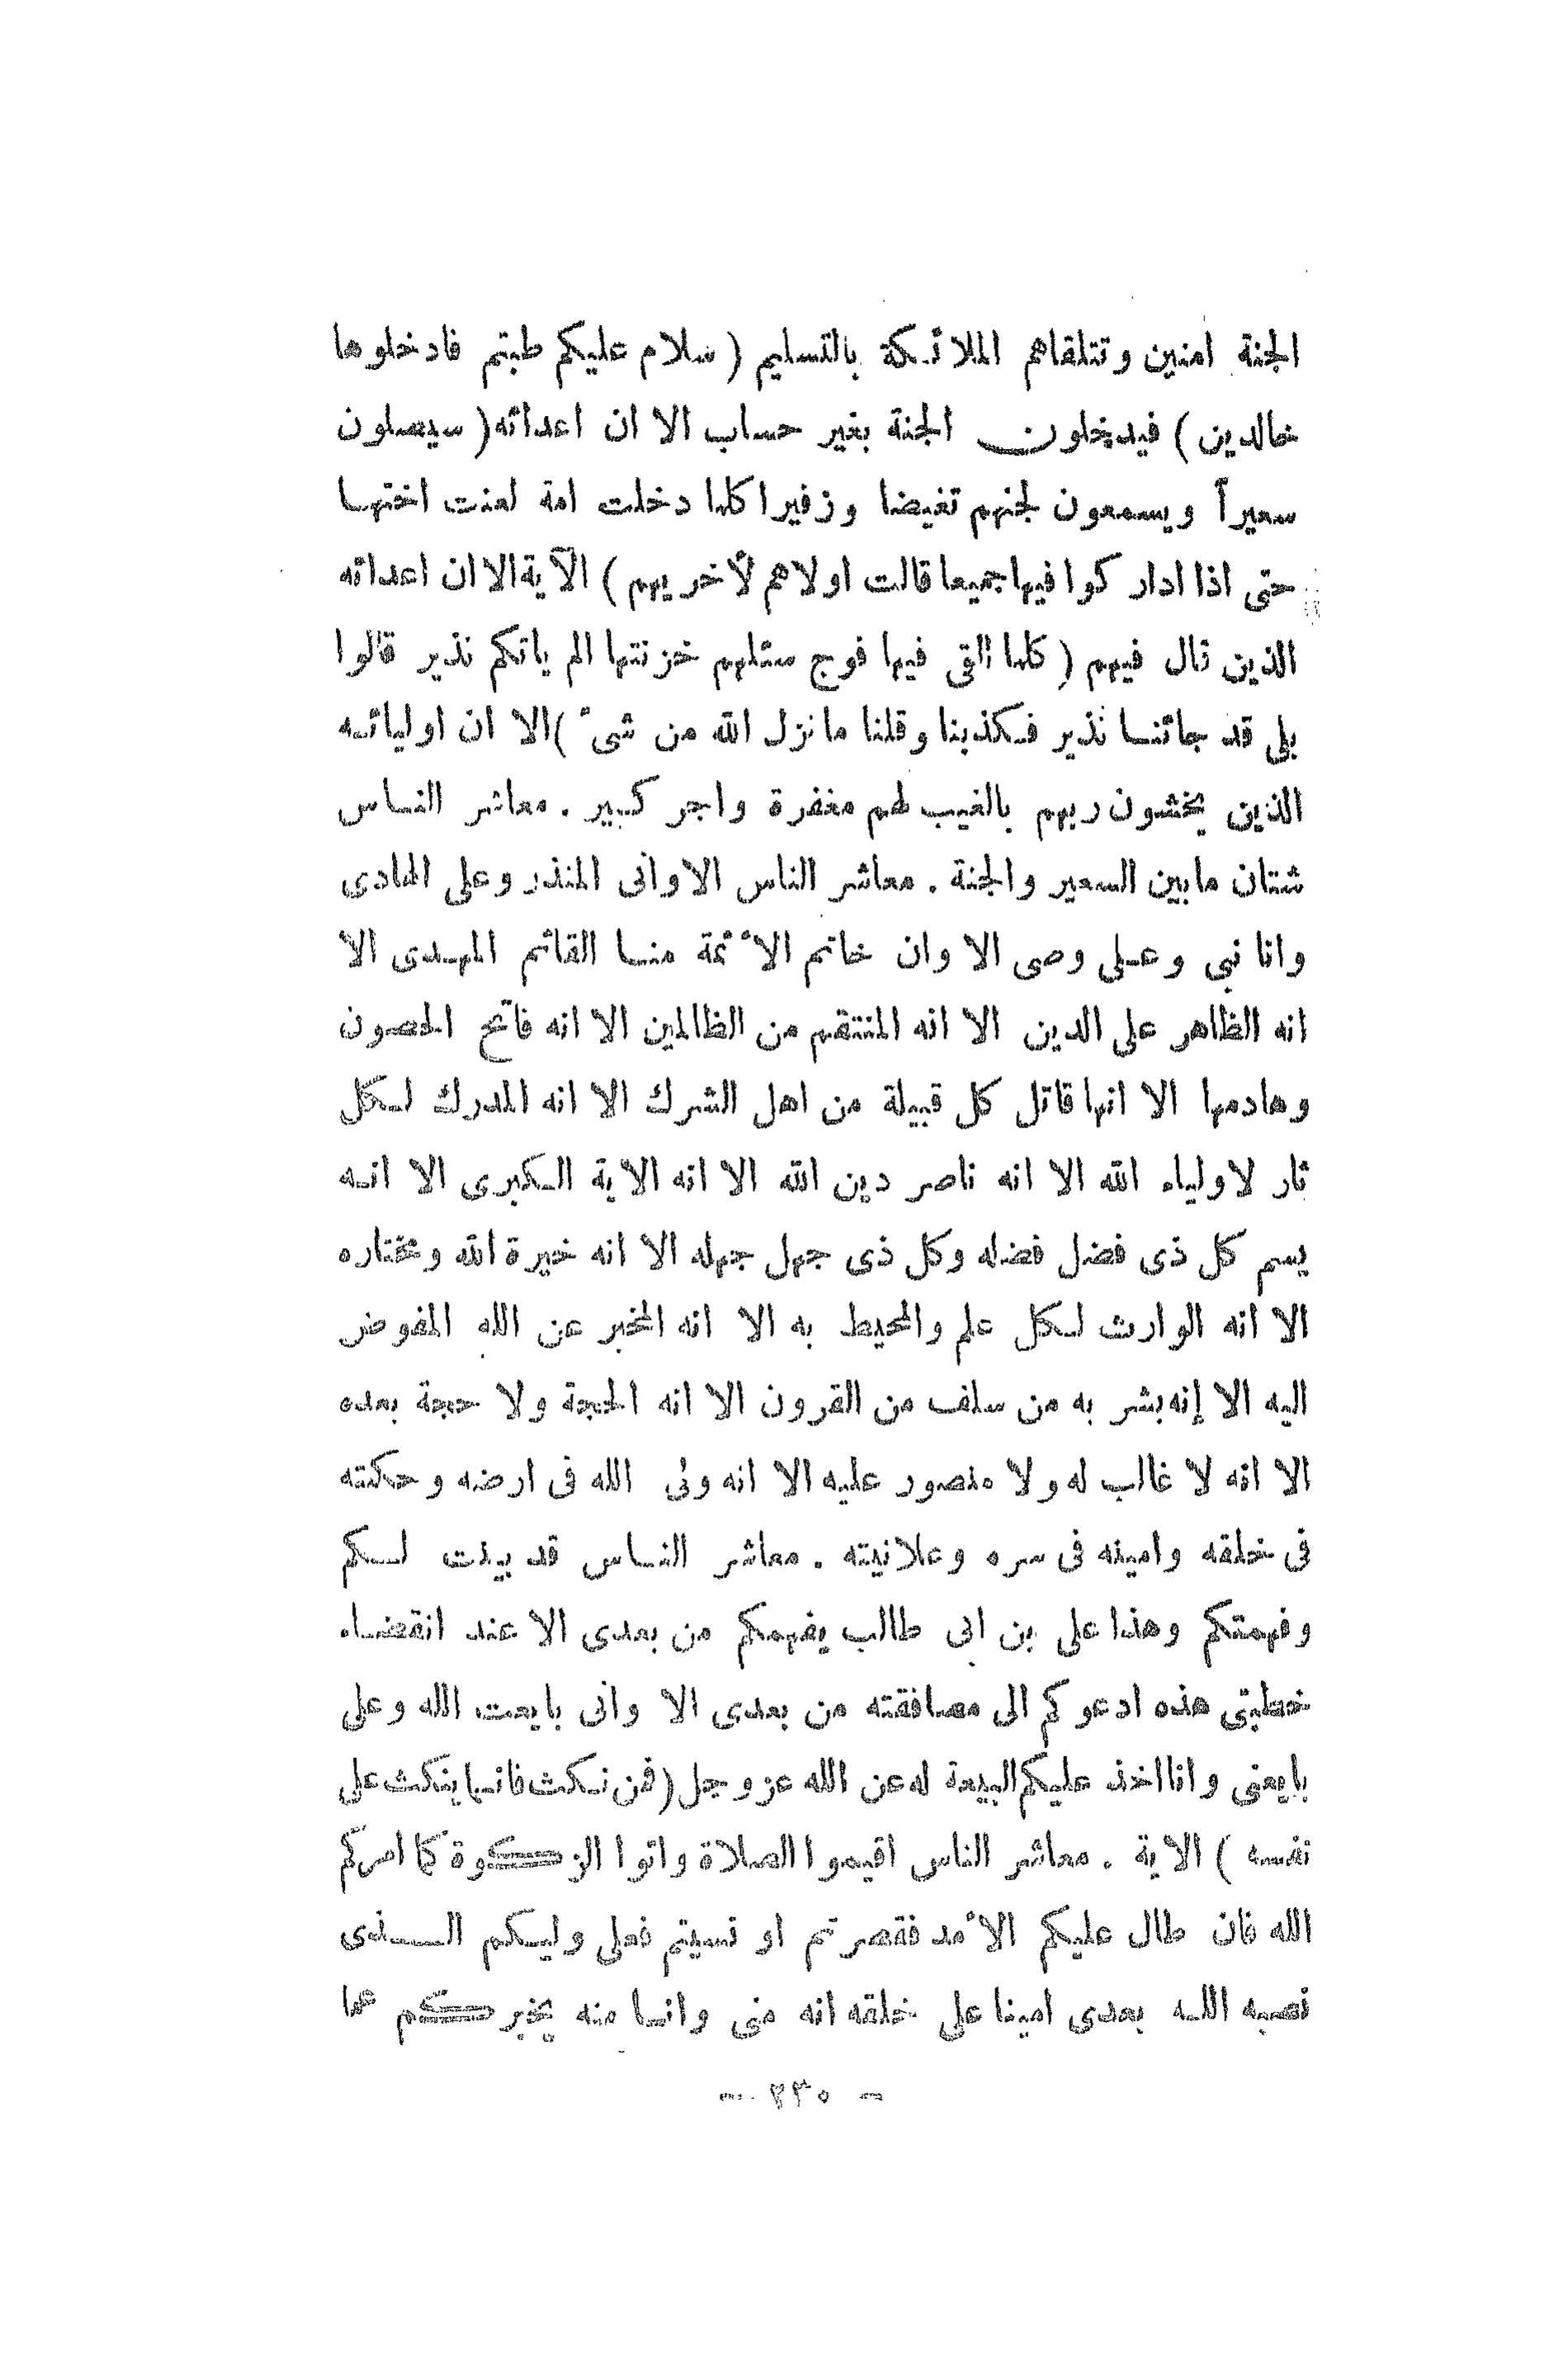 الجنة امنين وتتلقاهم الملائكة بالتسليم ( سلام عليكم طبتم فادخلوها
خالدين ) فيدخلون الجنة بغير حساب الا ان اعدائه ( سيصلون
سعيراً ويسمعون لجنهم تغيضا وزفيرا كلما دخلت امة لعنت اختها
حتى اذا ادار كوا فيها جميعا قالت اولاهم لأخريهم ) الآية الا ان اعدائه
الذين قال فيهم ( كلما القى فيها فوج سئلهم خزنتها الم ياتكم نذير قالوا
بلى قد جائنا نذير فكذبنا وقلنا ما نزل الله من شىء ) الا ان اوليائه
الذين يخشون ربهم بالغيب لهم مغفرة واجر كبير . معاشر الناس
شتان مابين السعير والجنة . معاشر الناس الا وانى المنذر وعلى الهادى
وانا نبى وعلى وصى الا وان خاتم الأئمة منا القائم المهدى الا
انه الظاهر على الدين الا انه المنتقم من الظالمين الا انه فاتح الحصون
وهادمها الا انها قاتل كل قبيلة من اهل الشرك الا انه المدرك لكل
ثار لاولياء الله الا انه ناصر دين الله الا انه الاية الكبرى الا انه
يسم كل ذى فضل فضله وكل ذى جهل جهله الا انه خيرة الله ومختاره
الا انه الوارث لكل علم والمحيط به الا انه المخبر عن الله المفوض
اليه الا إنه بشر به من سلف من القرون الا انه الحجة ولا حجة بعده
الا انه لا غالب له ولا منصور عليه الا انه ولى الله فى ارضه وحكمته
فى خلقه وامينه فى سره وعلانيته . معاشر الناس قد بينت لكم
وفهمتكم وهذا على بن ابى طالب يفهمكم من بعدى الا عند انقضاء
خطبتى هذه ادعوكم الى مصافقته من بعدى الا وانى بايعت الله وعلى
بايعنى وانا اخذ عليكم البيعة له عن الله عز وجل ( فمن نكث فانما ينكث على
نفسه ) الاية . معاشر الناس اقيموا الصلاة واتوا الزكوة كما امركم
الله فان طال عليكم الأمد فقصرتم او نسيتم فعلى وليكم الذى
نصبه الله بعدى امينا على خلقه انه منى وانا منه يخبركم عما
- ٢٣٥ -